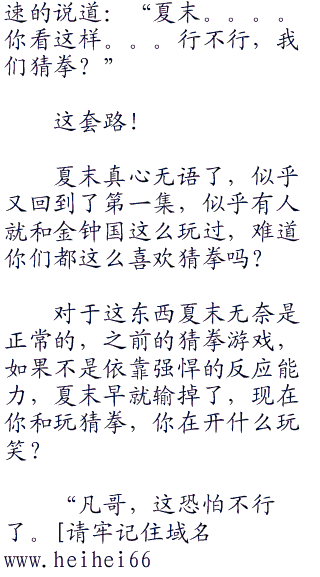 速的说道：“夏末。。。。
你看这样。。。行不行，我
们猜拳？”
这套路！
夏末真心无语了，似乎
又回到了第一集，似乎有人
就和金钟国这么玩过，难道
你们都这么喜欢猜拳吗？
对于这东西夏末无奈是
正常的，之前的猜拳游戏，
如果不是依靠强悍的反应能
力，夏末早就输掉了，现在
你和玩猜拳，你在开什么玩
笑？
“凡哥，这恐怕不行
了。[请牢记住域名
www.heihei66